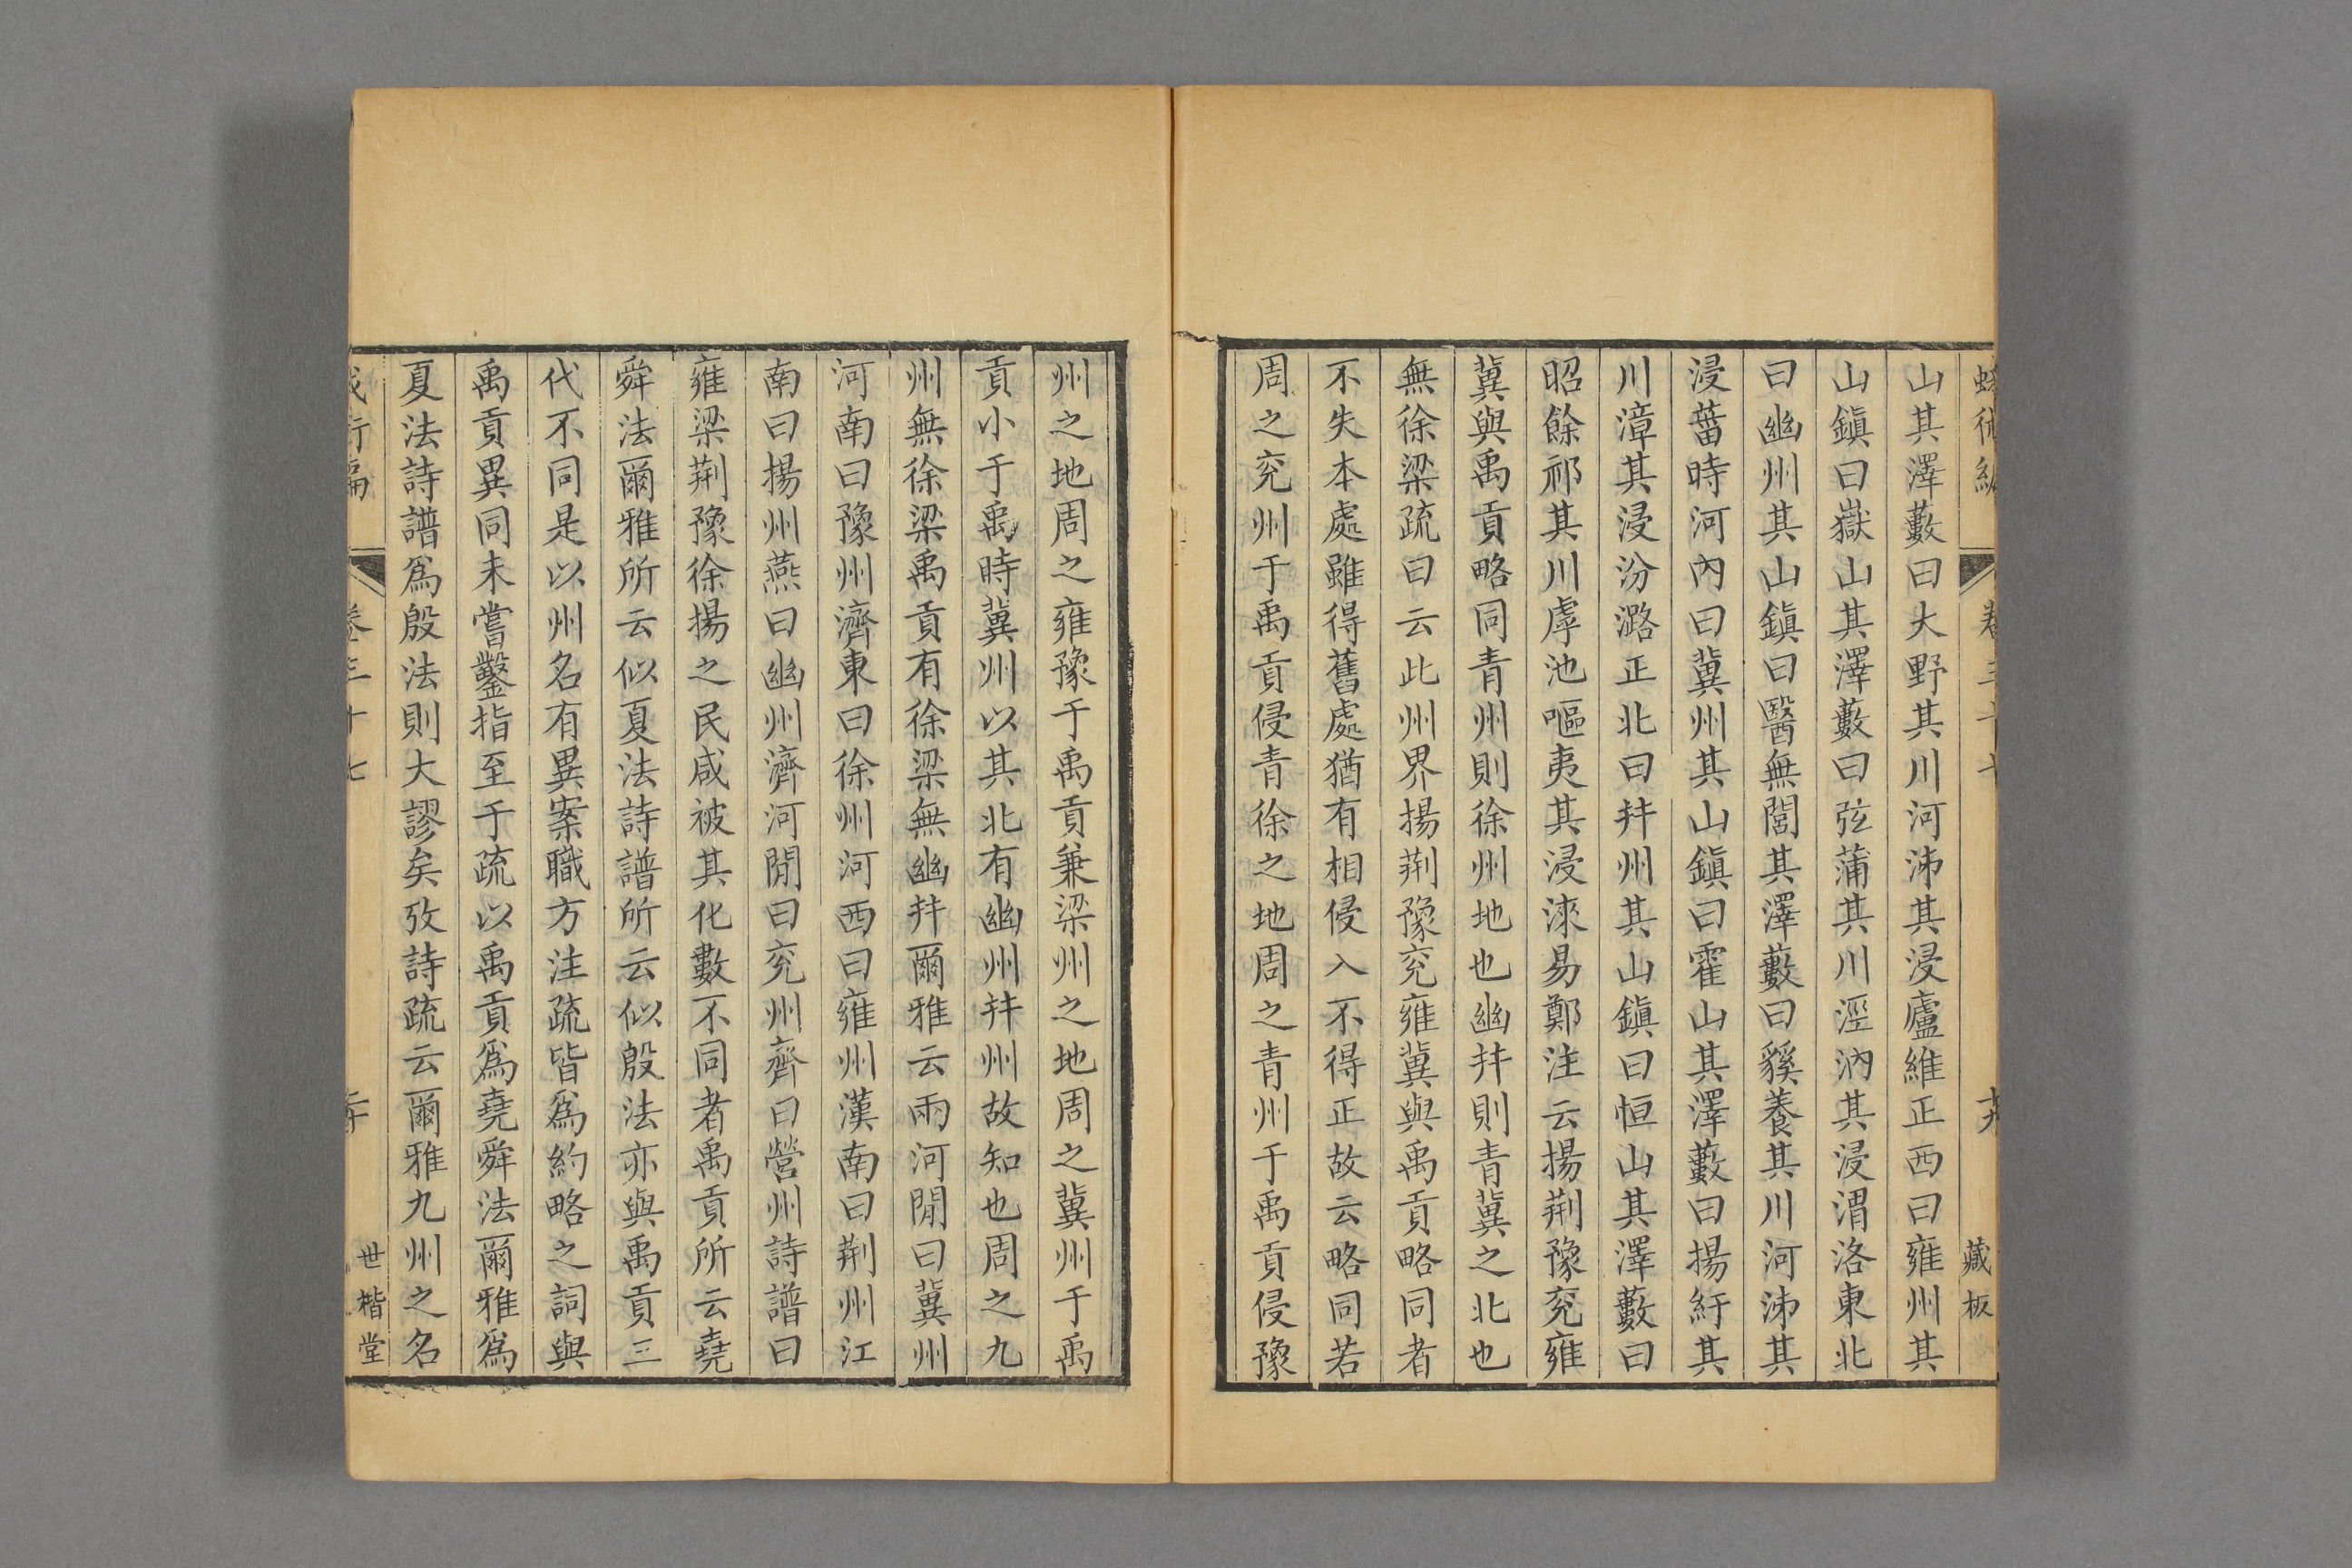 山其澤藪曰大野其川河泲其浸廬維正西曰雍州其
山鎭曰嶽山其澤藪曰弦蒲其川涇汭其浸渭洛東北
曰幽州其山鎭曰醫無閭其澤藪曰貕養其川河泲其
浸菑時河內曰冀州其山鎭曰霍山其澤藪曰揚紆其
川漳其浸汾潞正北曰幷州其山鎭曰恒山其澤藪曰
昭餘祁其川虖池嘔夷其浸淶易鄭注云揚荆豫兖雍
冀與禹貢略同青州則徐州地也幽幷則青冀之北也
無徐梁疏曰云此州界揚荆豫兖雍冀與禹貢略同者
不失本處雖得舊處猶有相侵入不得正故云略同若
周之兖州于禹貢侵青徐之地周之青州于禹貢侵豫
藏板
州之地周之雍豫于禹貢兼梁州之地周之冀州于禹
貢小于禹時冀州以其北有幽州幷州故知也周之九
州無徐梁禹貢有徐梁無幽幷爾雅云兩河閒曰冀州
河南曰豫州濟東曰徐州河西曰雍州漢南曰荆州江
南曰揚州燕曰幽州濟河閒曰兖州齊曰營州詩譜曰
雍梁荆豫徐揚之民咸被其化數不同者禹貢所云堯
舜法爾雅所云似夏法詩譜所云似殷法亦與禹貢三
代不同是以州名有異案職方注疏皆爲約略之詞與
禹貢異同未嘗鑿指至于疏以禹貢爲堯舜法爾雅爲
夏法詩譜爲殷法則大謬矣攷詩疏云爾雅九州之名
卷三十七
世楷堂